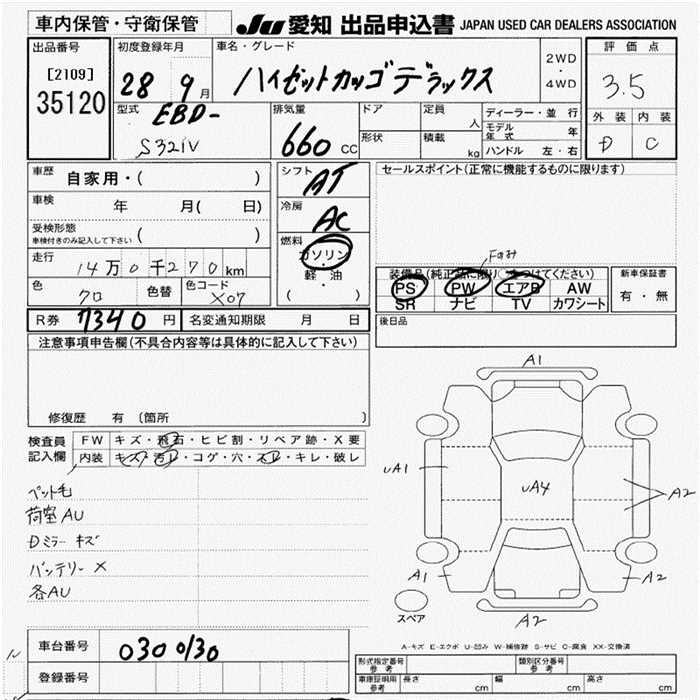 車内保管・守衛保管 JU 愛知 出品申込書 JAPAN USED CAR DEALERS ASSOCIATION
出品番号
[2109]
35120
初度登録年月
28 9月
車名・グレード
ハイゼットカーゴデラックス
2WD
・
4WD
評価点
3.5
外装 内装
D C
型式
EBD-
S321V
排気量
660 cc
ドア
形状
定員 人
積載 kg
ディーラー・並行
モデル年式 年
ハンドル 左・右
車歴 自家用・( )
車検 年 月( 日)
受検形態
車検付きのみ記入して下さい ( )
走行 14万0千270km
色 クロ 色替 色コード X07
R券 7340円 名変通知期限 月 日
シフト AT
冷房 AC
燃料
ガソリン
・
軽油
( )
セールスポイント(正常に機能するものに限ります)
Fのみ
装備品(純正品に限り○をつけてください)
PS PW エアB AW
SR ナビ TV カワシート
新車保証書
有・無
後日品
注意事項申告欄(不具合内容等は具体的に記入して下さい)
修復歴 有 〔箇所
検査員記入欄
FW キズ・飛石・ヒビ割・リペア跡・X要
内装 キズ・汚レ・コゲ・穴・スレ・キレ・破レ
ペット毛
荷室AU
Dミラーキズ
バッテリーX
各AU
A1
uA1
uA4
A2
A1
A2
A2
スペア
A-キズ E-エクボ U-凹み W-補修跡 S-サビ C-腐食 XX-交換済
車台番号 0300130
登録番号
型式指定番号 参考
類別区分番号 参考
車庫証明用 参考 長さ cm 幅 cm 高さ cm